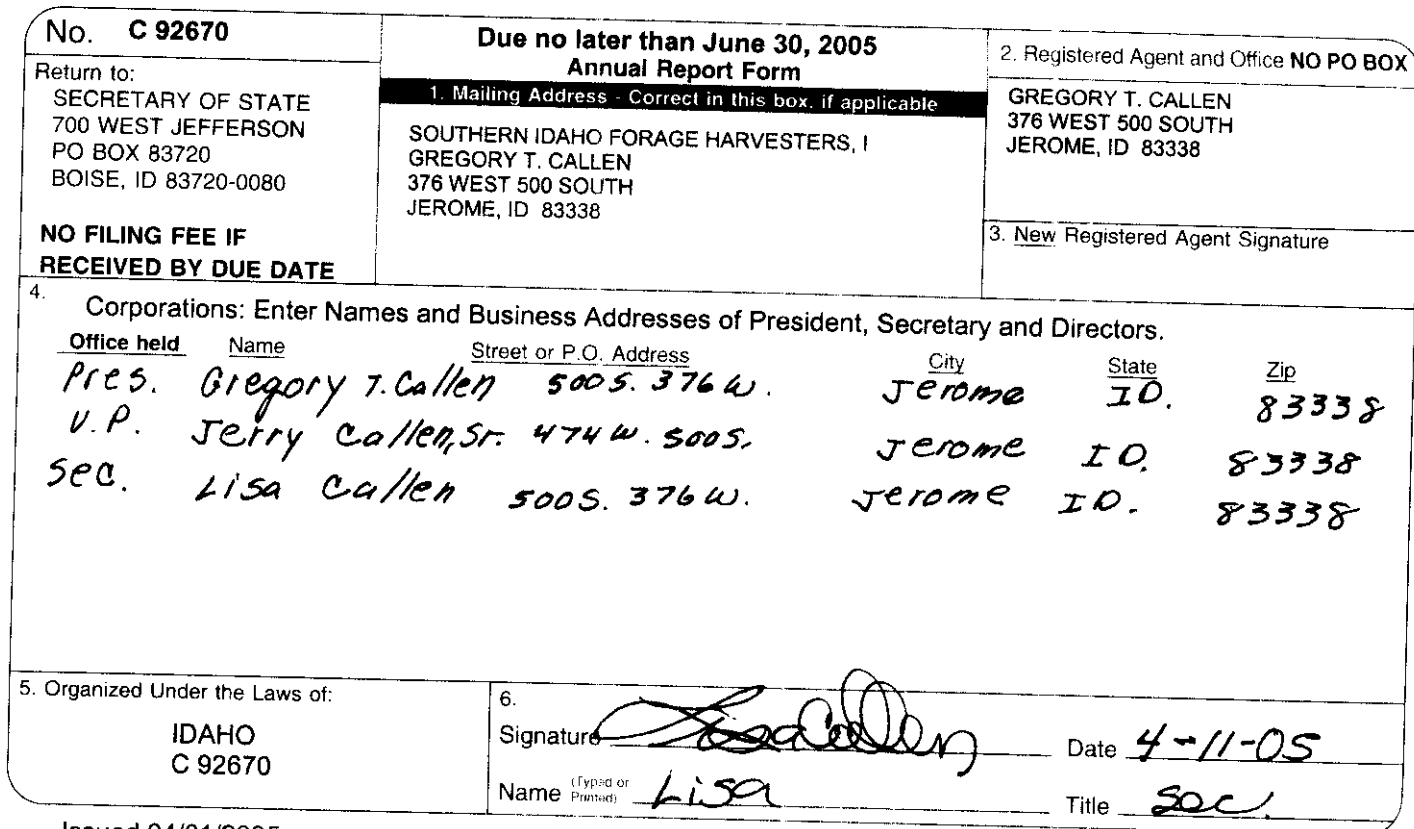 No. C 92670
Return to:
SECRETARY OF STATE
700 WEST JEFFERSON
PO BOX 83720
BOISE, ID 83720-0080
NO FILING FEE IF
RECEIVED BY DUE DATE
Due no later than June 30, 2005
Annual Report Form
1. Mailing Address - Correct in this box, if applicable
SOUTHERN IDAHO FORAGE HARVESTERS, I
GREGORY T. CALLEN
376 WEST 500 SOUTH
JEROME, ID 83338
2. Registered Agent and Office NO PO BOX
GREGORY T. CALLEN
376 WEST 500 SOUTH
JEROME, ID 83338
3. New Registered Agent Signature
4. Corporations: Enter Names and Business Addresses of President, Secretary and Directors.
Office held Name Street or P.O. Address City State Zip
Pres. Gregory T. Callen 500 S. 376 W. Jerome ID. 83338
V.P. Jerry Callen, Sr. 474 W. 500 S. Jerome ID. 83338
Sec. Lisa Callen 500 S. 376 W. Jerome ID. 83338
5. Organized Under the Laws of:
IDAHO
C 92670
6.
Signature Lisa Callen Date 4-11-05
Name (Typed or Printed) Lisa Title Sec.